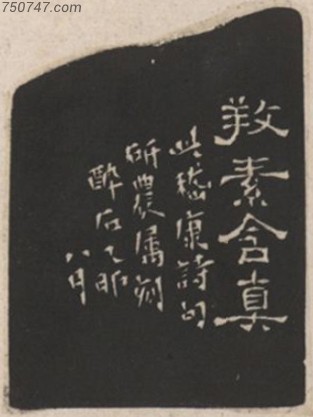 𢼝素含真
此嵇康詩句
研農属刻
醉石乙卯
八月
750747.com